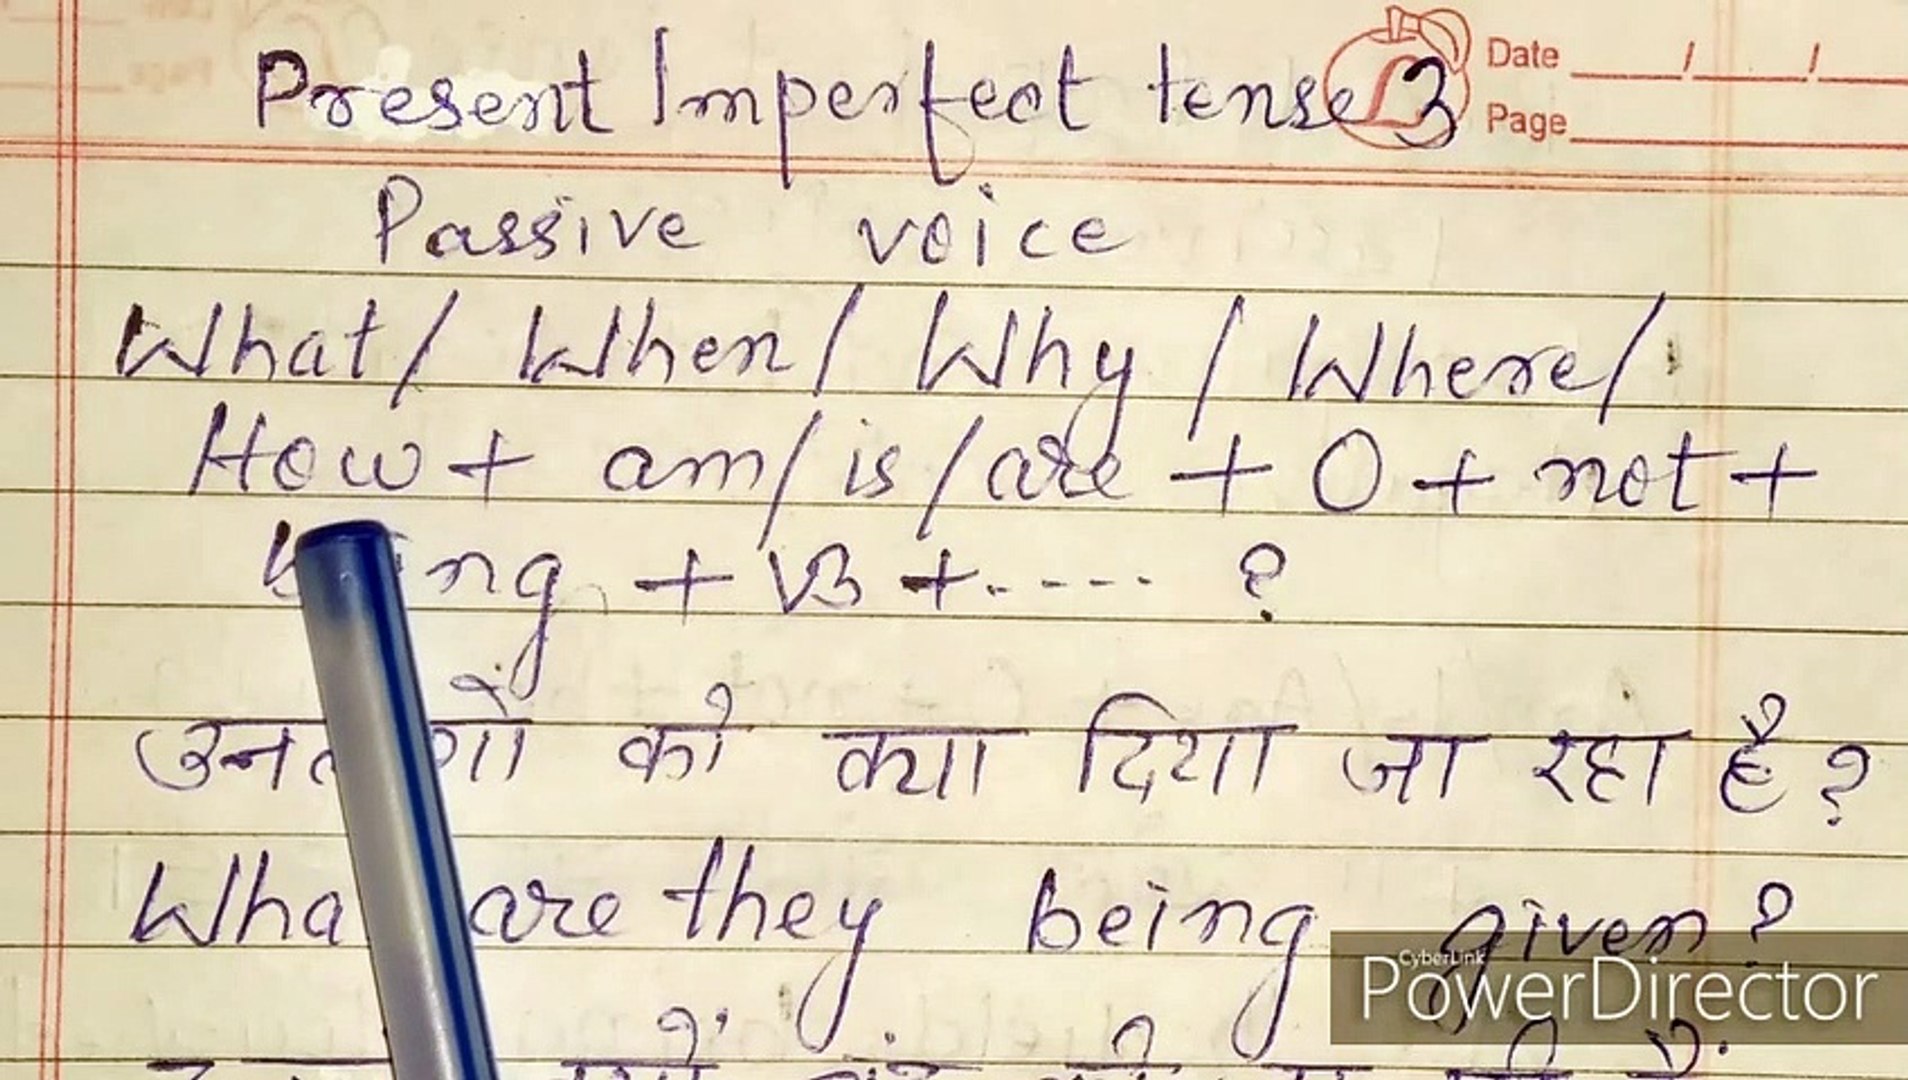 Present Imperfect tense 3
Date / /
Page
Passive voice
What/ When/ Why / Where/
How + am/ is / are + O + not +
+ V3 + ..--- ?
को क्या दिया जा रहा है ?
are they being given ?
CyberLink
PowerDirector